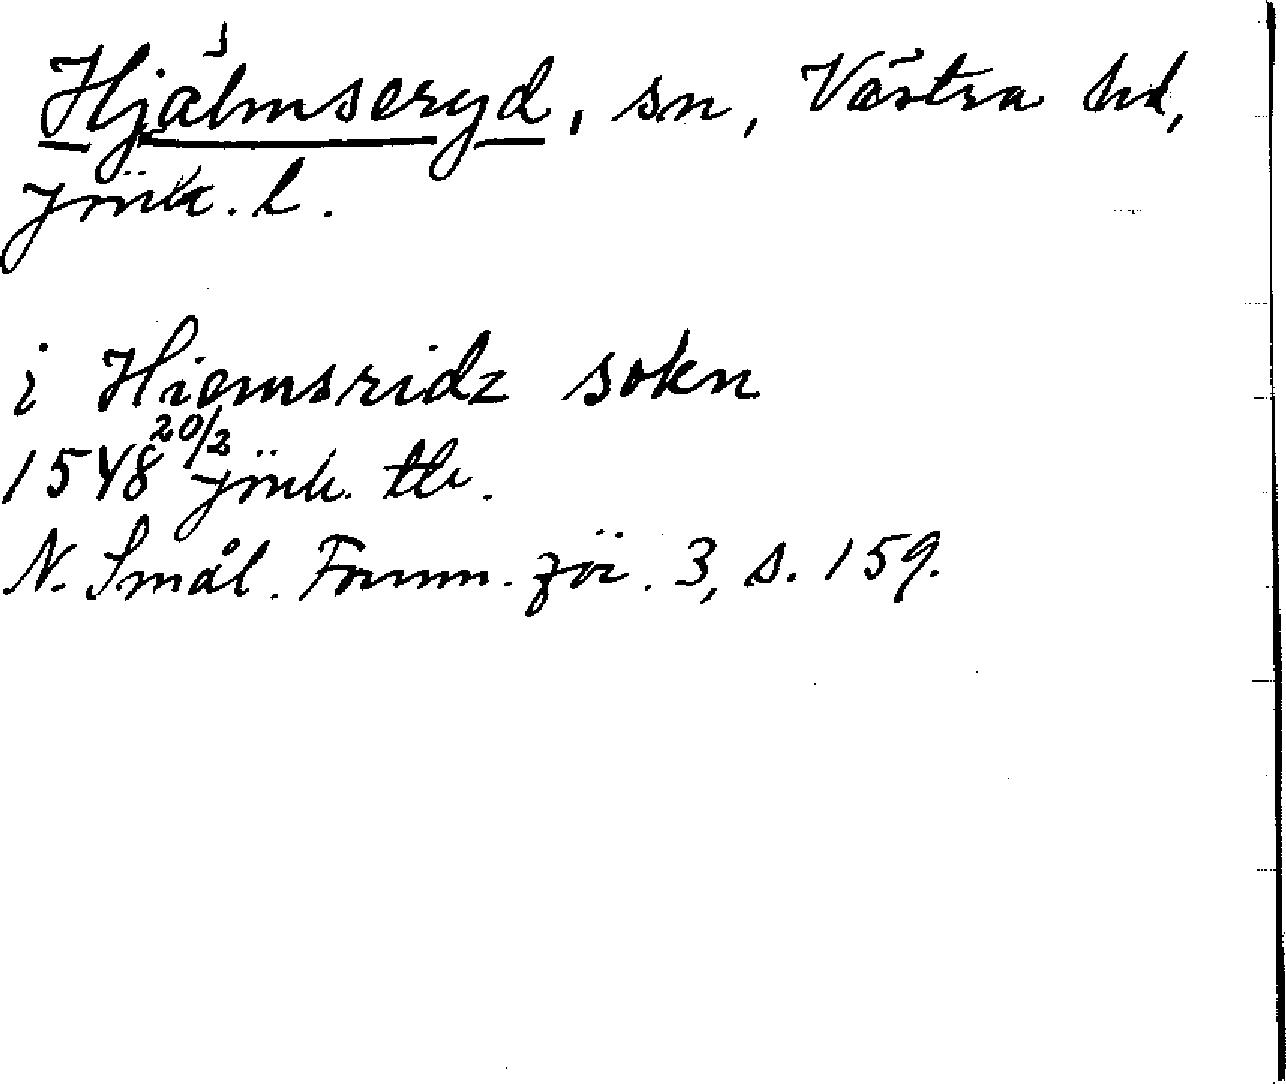 Hjälmseryd, sn, Västra hd,
Jönk. l.
i Hiemsridz sokn
1548 20/2 Jönk. tb.
N. Smål. Fornm. för. 3, s. 159.